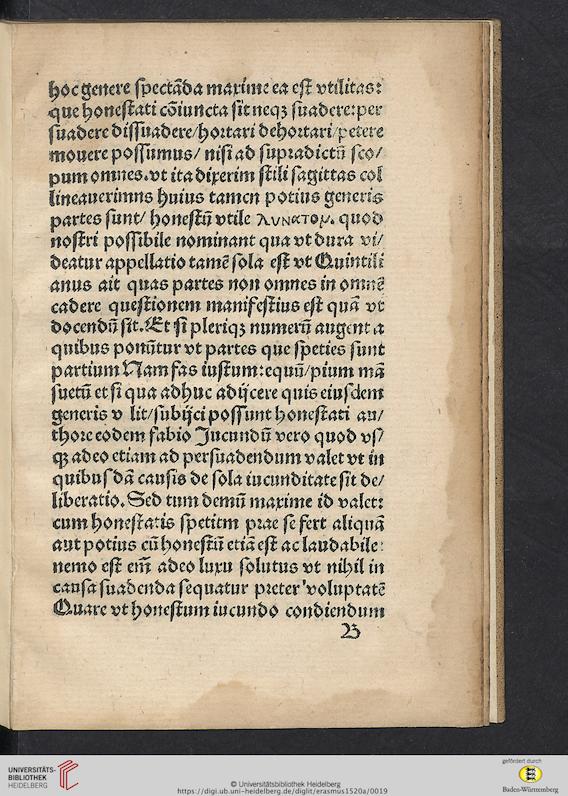 hoc genere spectāda maxime ea est vtilitas:
que honestati cōiuncta sit neqꝫ suadere:per
suadere dissuadere/hortari dehortari/petere
mouere possumus/ nisi ad supradictū sco/
pum omnes.vt ita dixerim stili sagittas col
lineauerimns huius tamen potius generis
partes sunt/ honestū vtile λυνατομ. quod
nostri possibile nominant qua vt dura vi/
deatur appellatio tamē sola est vt Quintili
anus ait quas partes non omnes in omnē
cadere questionem manifestius est quā vt
docendū sit.Et si pleriqꝫ numerū augent a
quibus ponūtur vt partes que speties sunt
partium Nam fas iustum:equū/pium mā
suetū et si qua adhuc adijcere quis eiusdem
generis v lit/subijci possunt honestati au/
thore eodem fabio Jucundū vero quod vs/
qꝫ adeo etiam ad persuadendum valet vt in
quibusdā causis de sola iucunditate sit de/
liberatio. Sed tum demū maxime id valet:
cum honestatis spetitm prae se fert aliquā
aut potius cū honestū etiā est ac laudabile:
nemo est em̄ adeo luxu solutus vt nihil in
causa suadenda sequatur preter voluptatē
Quare vt honestum iucundo condiendum
B
UNIVERSITÄTS-
BIBLIOTHEK
HEIDELBERG
© Universitätsbibliothek Heidelberg
https://digi.ub.uni-heidelberg.de/diglit/erasmus1520a/0019
gefördert durch
Baden-Württemberg